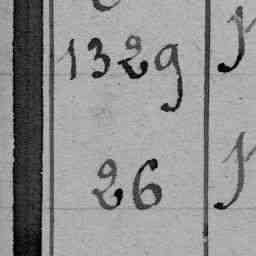 1329
26